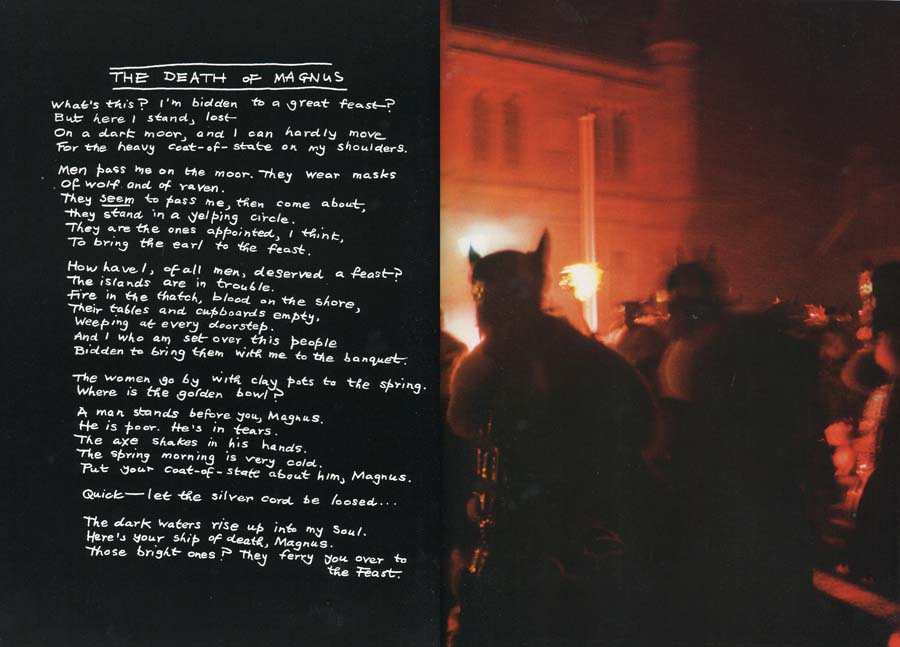 THE DEATH OF MAGNUS
What's this? I'm bidden to a great feast?
But here I stand, lost
On a dark moor, and I can hardly move
For the heavy coat-of-state on my shoulders.
Men pass me on the moor. They wear masks
Of wolf and of raven.
They seem to pass me, then come about,
They stand in a yelping circle.
They are the ones appointed, I think,
To bring the earl to the feast.
How have I, of all men, deserved a feast?
The islands are in trouble.
Fire in the thatch, blood on the shore,
Their tables and cupboards empty,
Weeping at every doorstep.
And I who am set over this people
Bidden to bring them with me to the banquet.
The women go by with clay pots to the spring.
Where is the golden bowl?
A man stands before you, Magnus.
He is poor. He's in tears.
The axe shakes in his hands.
The spring morning is very cold.
Put your coat-of-state about him, Magnus.
Quick—let the silver cord be loosed...
The dark waters rise up into my soul.
Here's your ship of death, Magnus.
Those bright ones? They ferry you over to
the Feast.